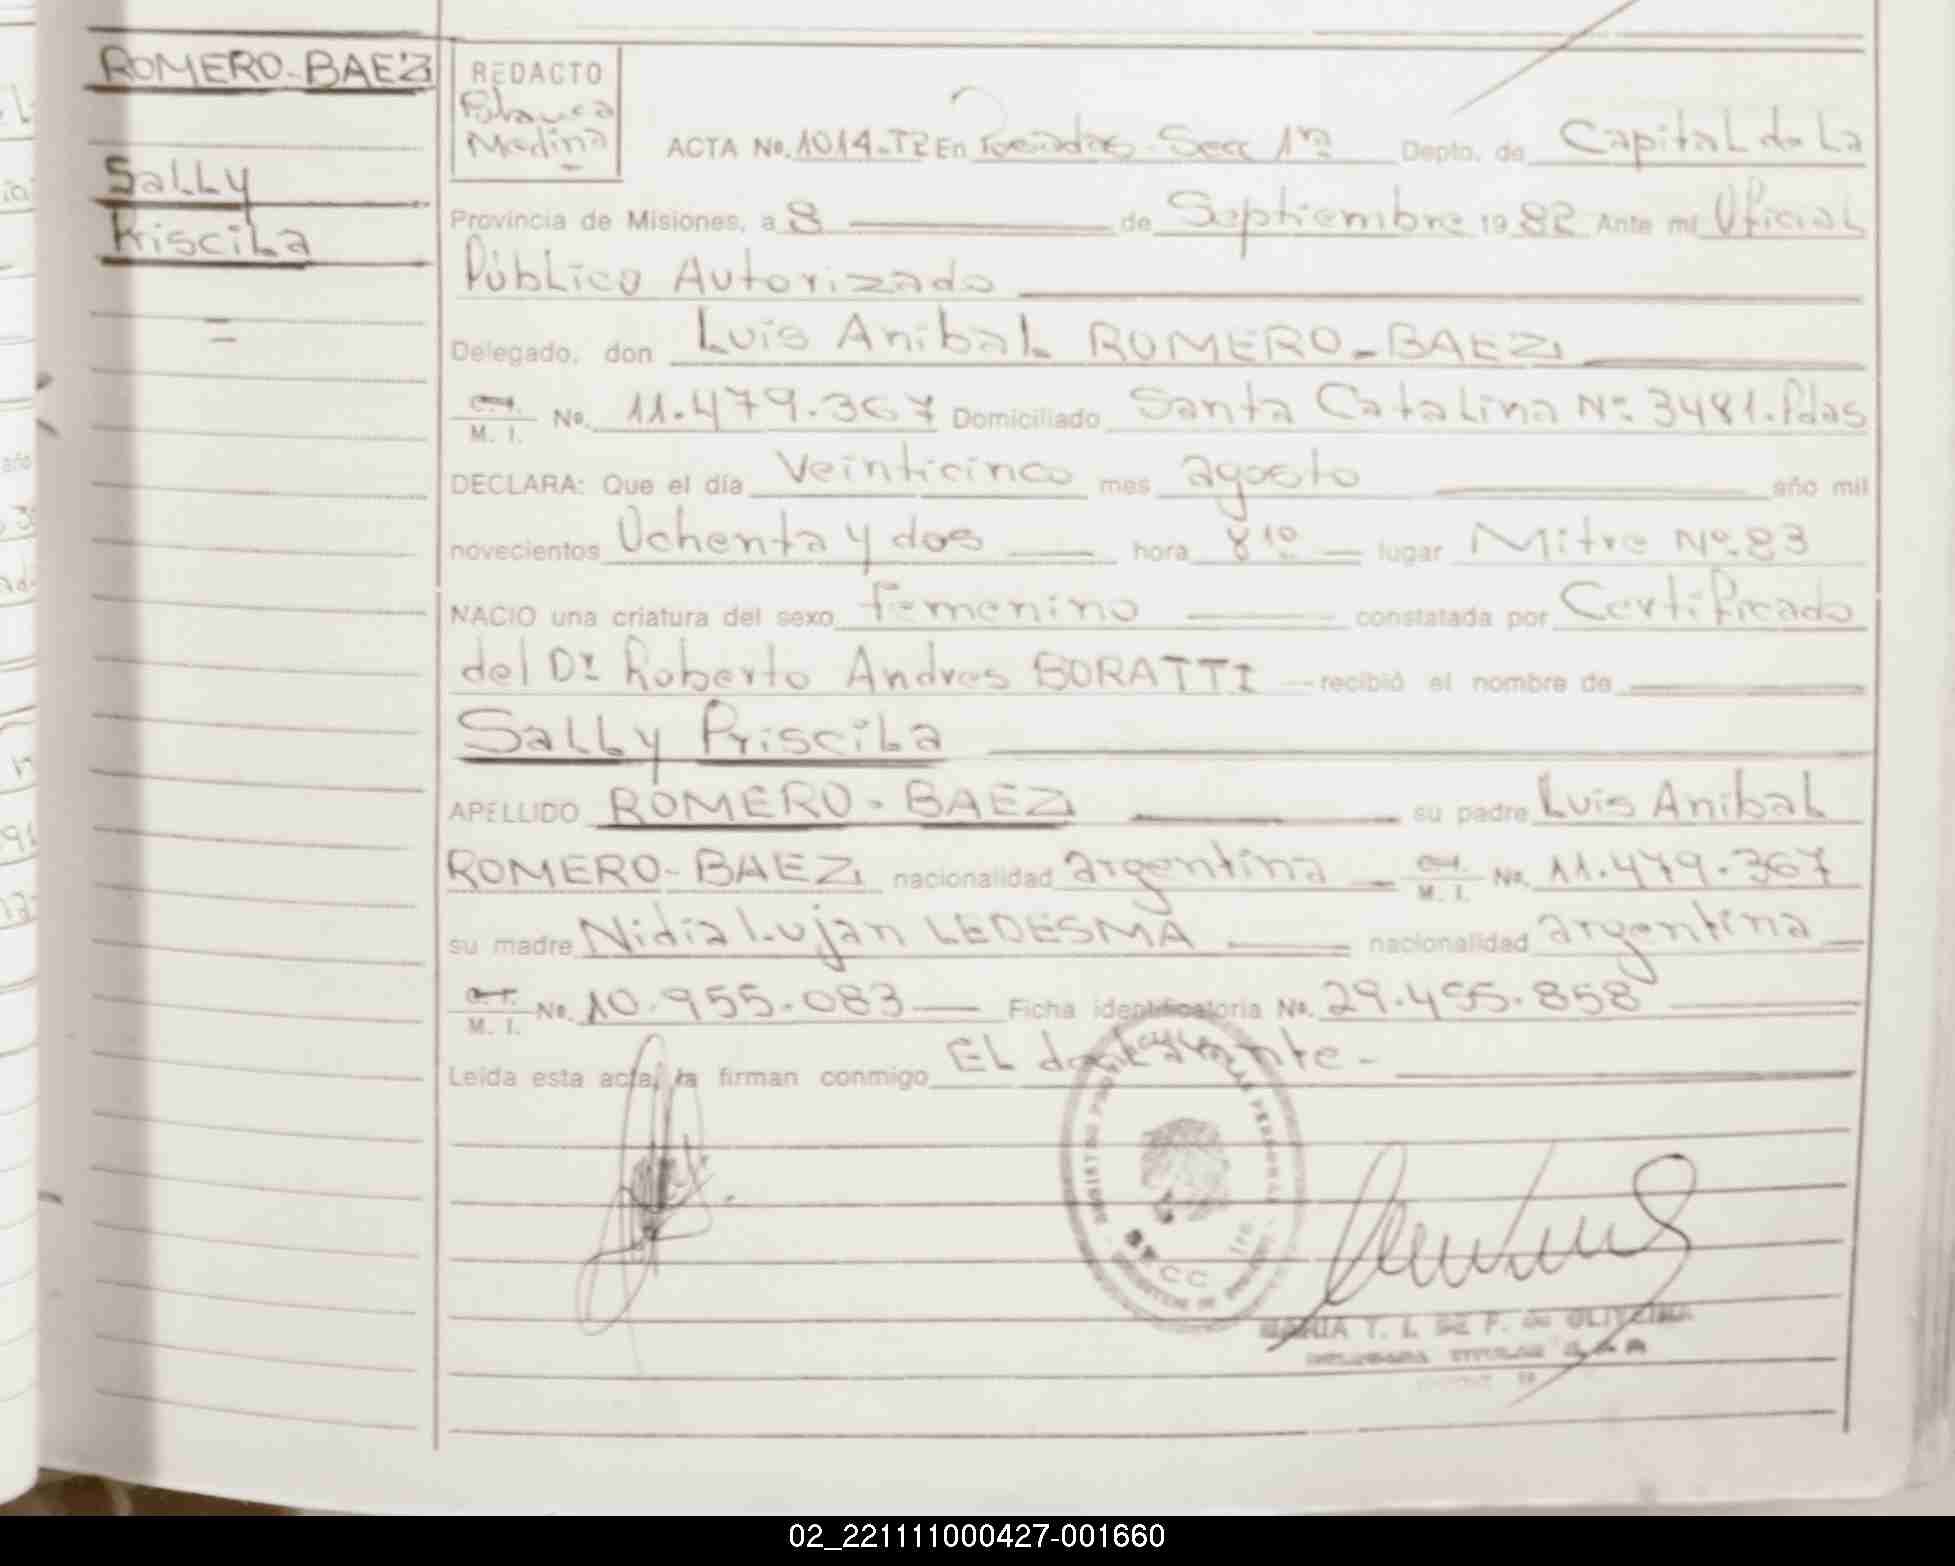 ROMERO-BAEZ
Sally
Priscila
REDACTO
Blanca
Medina
ACTA No. 1014-T2 En Posadas Secc 1ra Depto. de Capital de La
Provincia de Misiones, a 8 de Septiembre 1982 Ante mi Oficial
Público Autorizado
Delegado, don Luis Anibal ROMERO-BAEZ
M. I. No. 11.479.367 Domiciliado Santa Catalina Nº 3481. Pdas
DECLARA: Que el día Veinticinco mes agosto año mil
novecientos Ochenta y dos hora 8 10 lugar Mitre Nº 83
NACIO una criatura del sexo femenino constatada por Certificado
del Dr Roberto Andres BORATTI recibió el nombre de
Sally Priscila
APELLIDO ROMERO-BAEZ su padre Luis Anibal
ROMERO-BAEZ nacionalidad argentina M. I. No. 11.479.367
su madre Nidia Lujan LEDESMA nacionalidad argentina
M. I. No. 10.955.083 Ficha identificatoria No. 29.455.858
Leída esta acta, la firman conmigo EL declarante-
MARIA T. L. DE F. DE OLIVEIRA
TITULAR
02_221111000427-001660